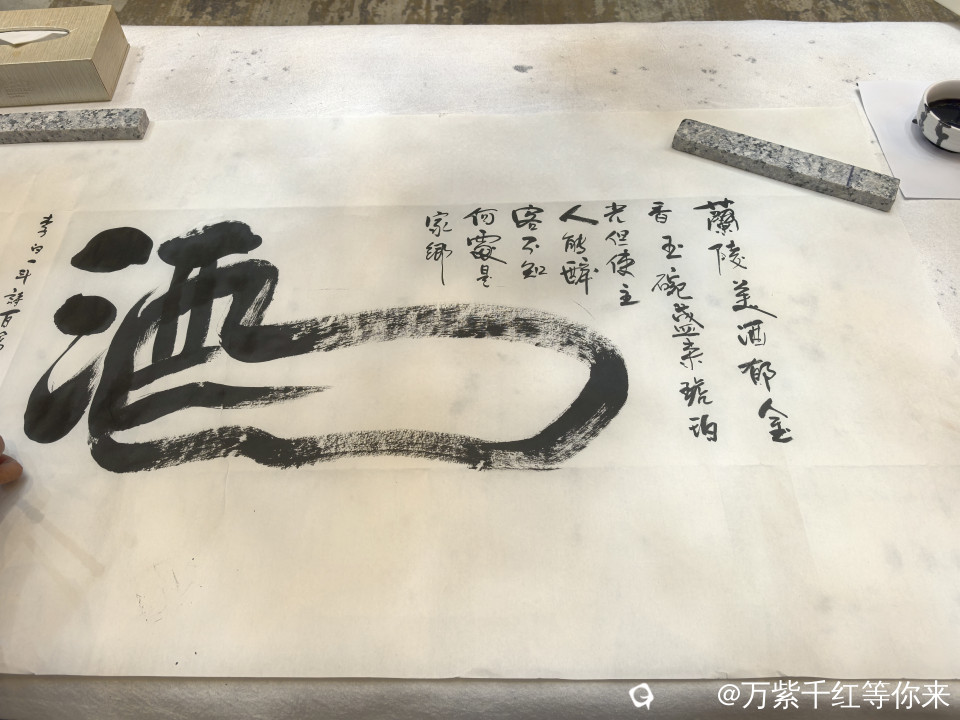 蘭陵美酒郁金
香玉碗盛来琥珀
光但使主
人能醉
客不知
何處是
家鄉
酒
李白一斗詩百
@万紫千红等你来